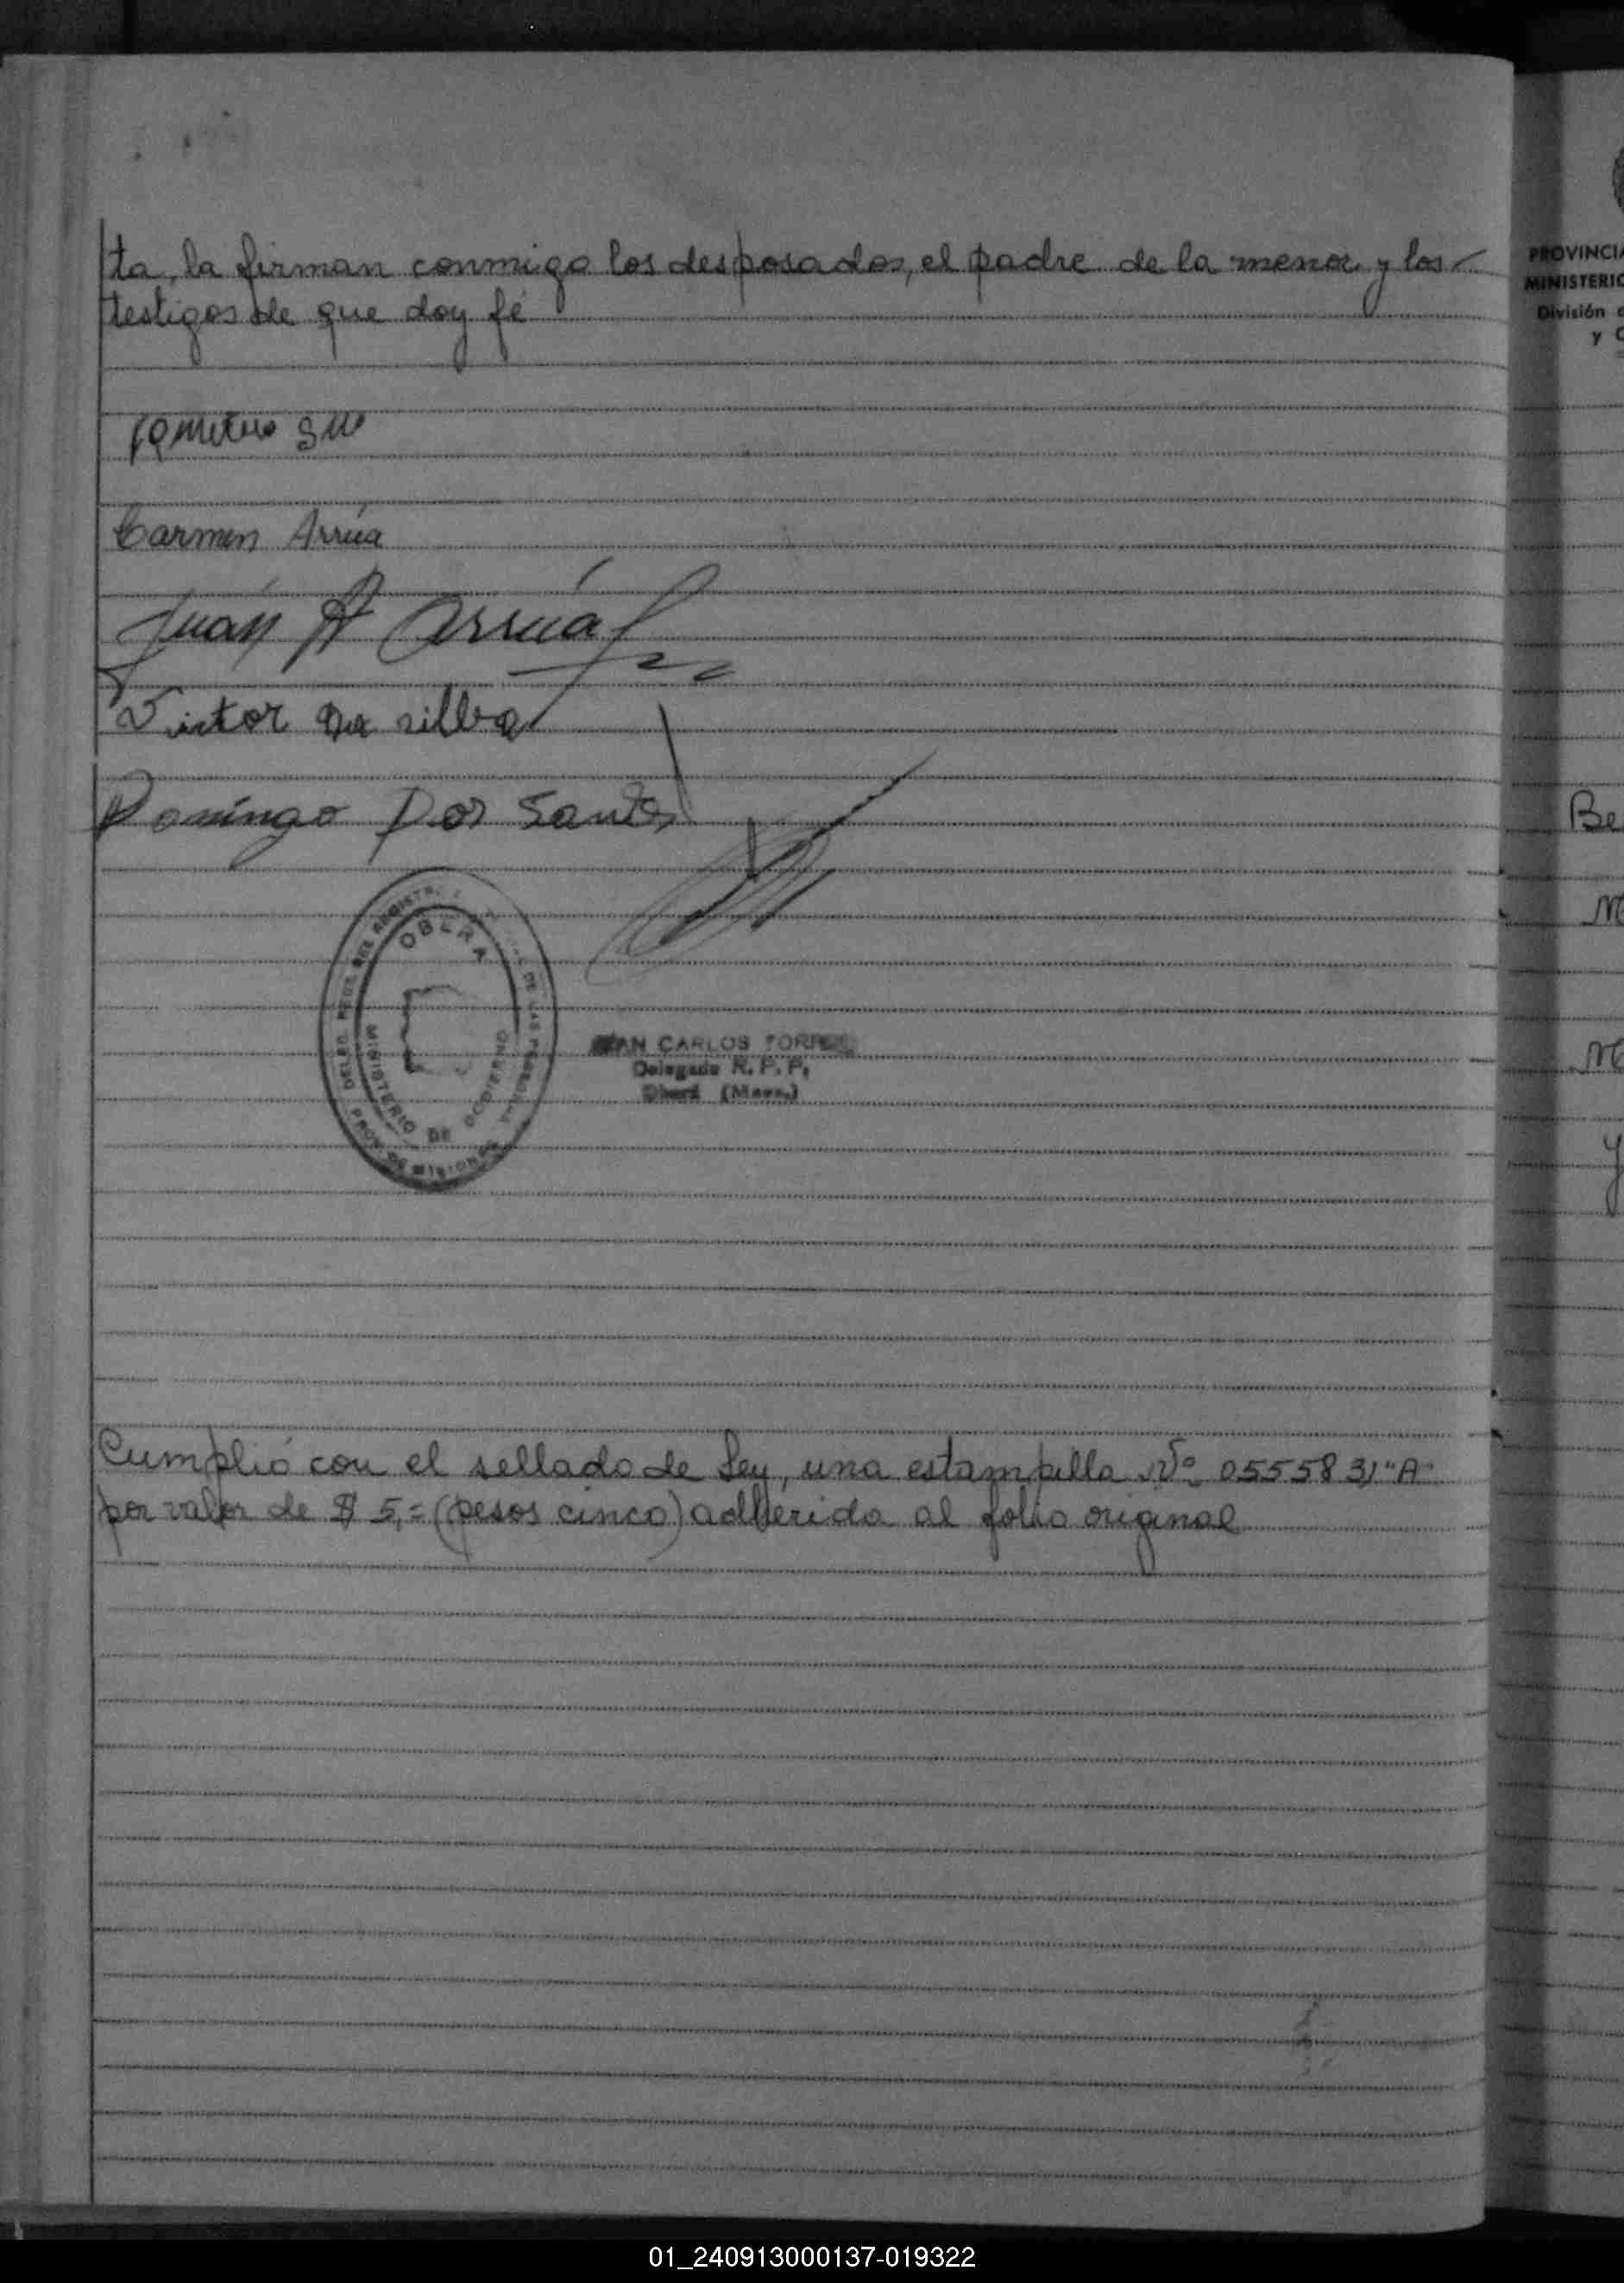 ta, la firman conmigo los desposados, el padre de la menor y los
testigos de que doy fé
Carmen Arrúa
Juan A Arrúa
Victor Da silba
Domingo Dos Santos
OBERA
MINISTERIO DE GOBIERNO
PROV. DE MISIONES
CARLOS TORRES
Delegado R. P. P.
Oberá (Mnes.)
Cumplió con el sellado de Ley, una estampilla Nº 0555831 "A"
por valor de $ 5,= (pesos cinco) adherida al folio original
PROVINCIA
MINISTERIO
División
y
Be
01_240913000137-019322